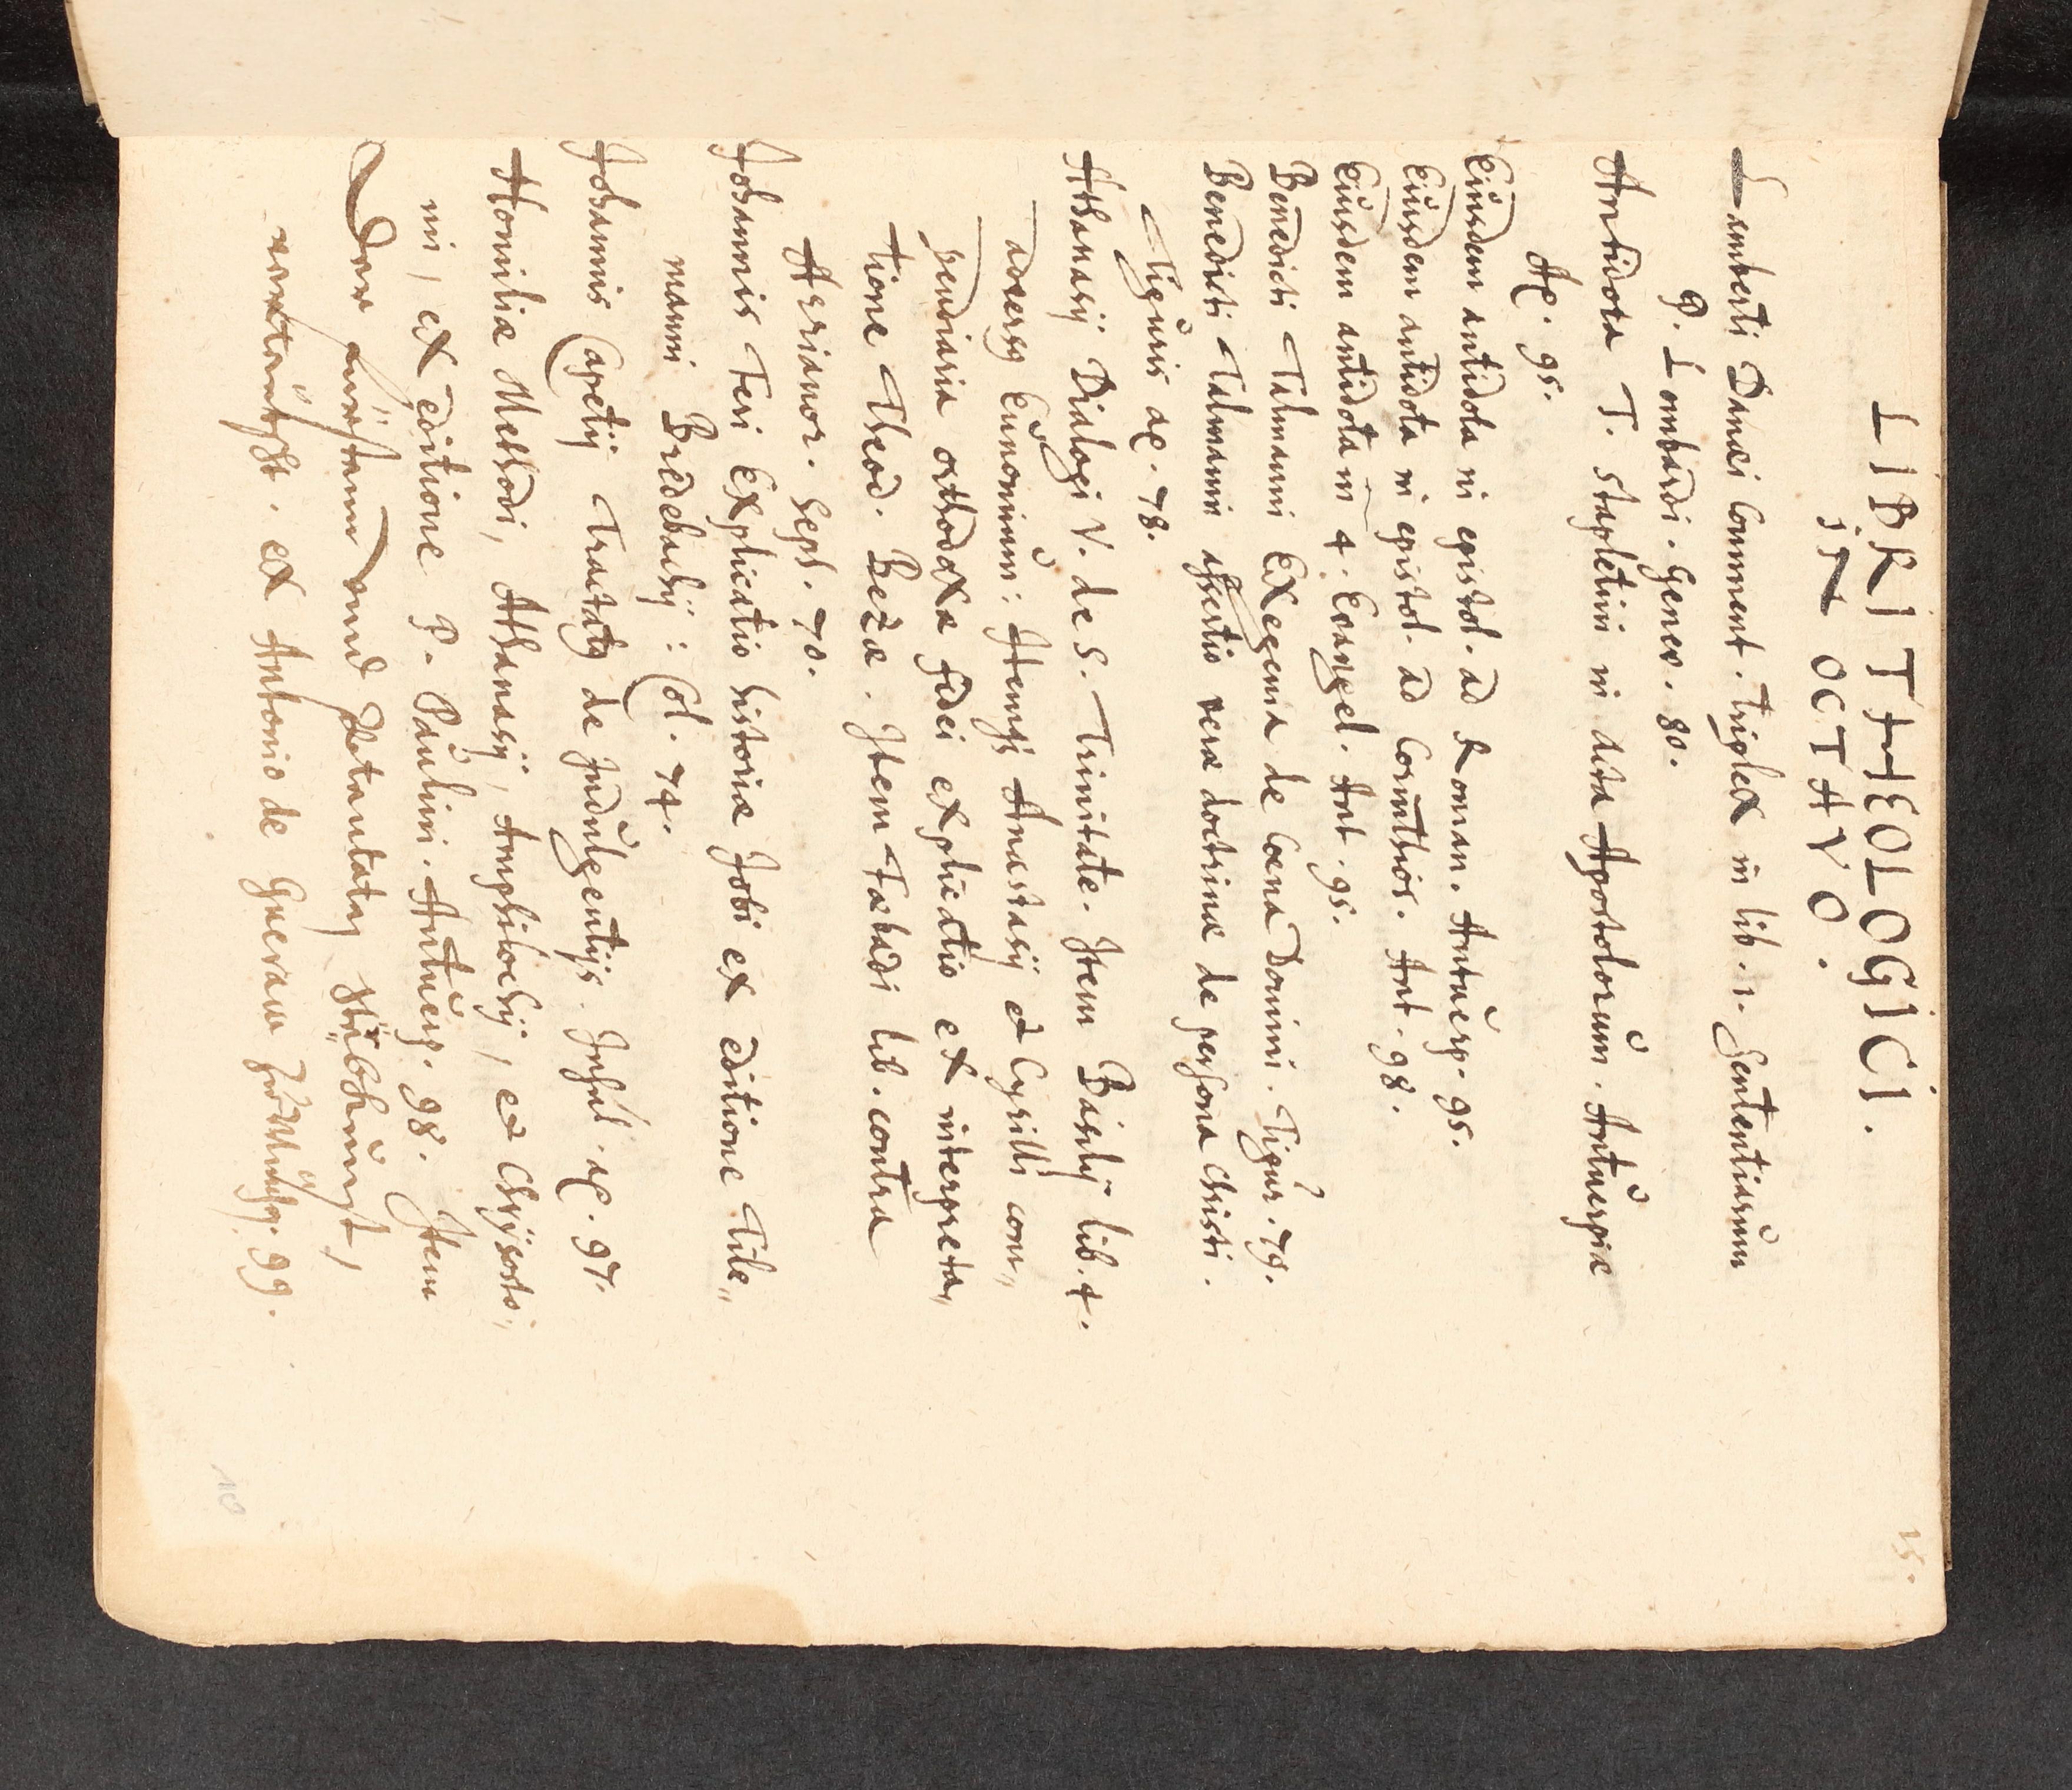 15.
LIBRI THEOLOGICI.
IN OCTAVO.
Lamberti Danæi Comment. triplex in lib. 1. Sententiarum
P. Lombardi. Genev. 80.
Antidota T. Stapletini in Acta Apostolorum. Antuerpiæ
Aº. 95.
Eiusdem antidota in epistol. ad Roman. Antuerp. 95.
Eiusdem antidota in epistol. ad Corinthios. Ant. 98.
Eiusdem antidota in 4. Evangel. Ant. 95.
Benedicti Talmanni Exegema de Coena Domini. Tigur. 79.
Benedicti Talmanni assertio veræ doctrinæ de persona Christi.
Tiguris aº. 78.
Athanasij Dialogi V. de S. Trinitate. Item Basilij lib. 4.
adversus Eunomium: Itemqs Anastasij et Cyrilli com„
pendiaria orthodoxæ fidei explicatio ex interpreta„
tione Theod. Bezæ. Item Fæbadi lib. contra
Arrianor. Seps. 70.
Johannis Feri Explicatio historiæ Jobi ex editione Tile„
manni Bredebachij: Col. 74.
Johannis Capetij Tractatus de Indulgentijs. Insul. aº. 97.
Homiliæ Methodi, Athanasij, Amphilochij, et Chrÿsosto„
mi, ex editione P. Paulini. Antuerp. 98. Item
Der
ex Antonio de Guevara 99.
10